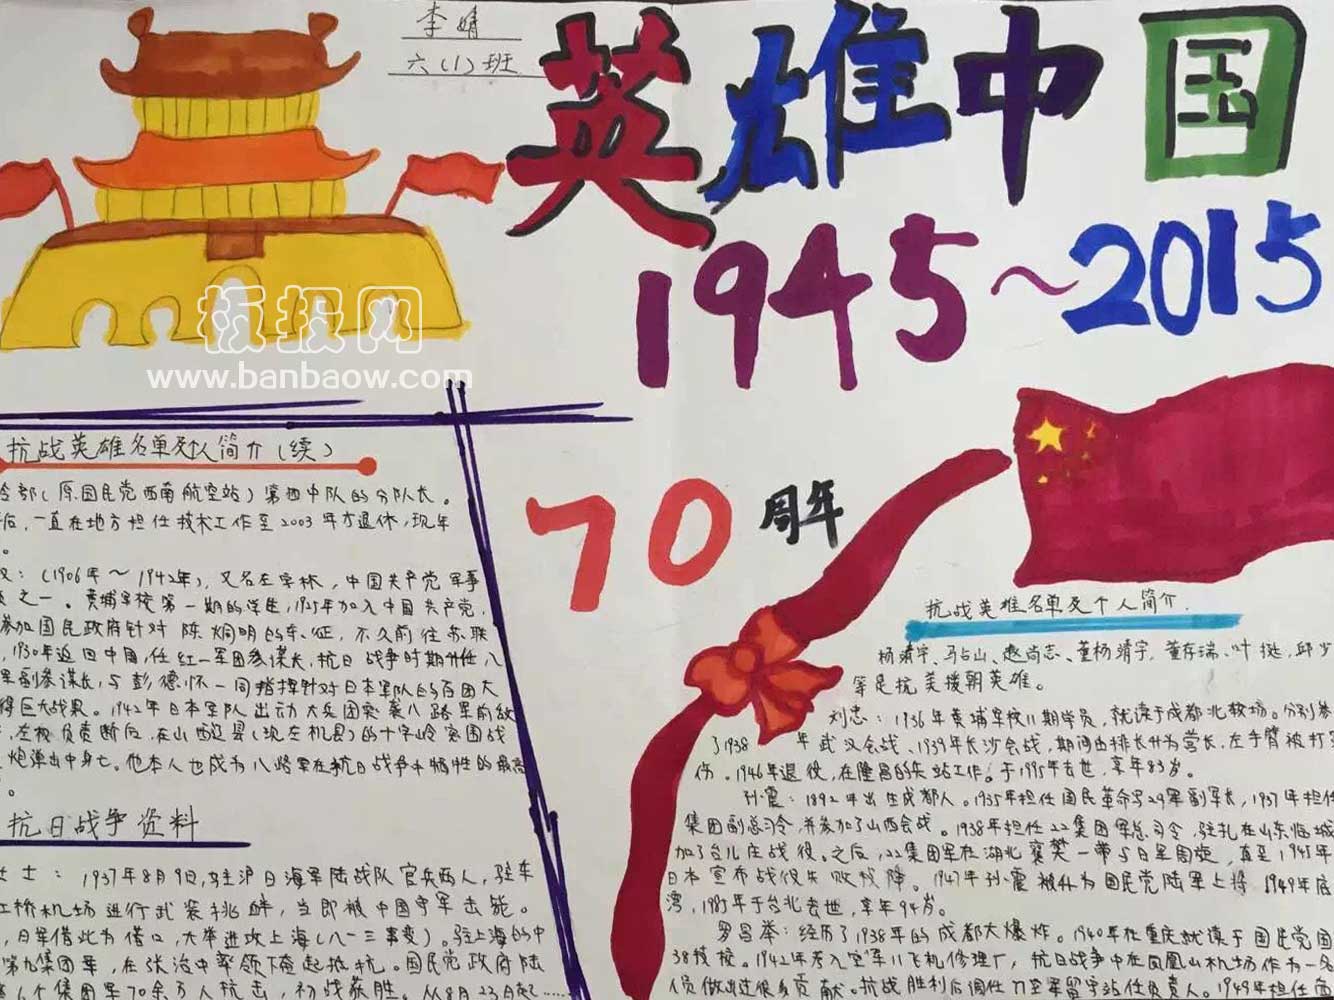 李婧
六(1)班
英雄中国
1945~2015
板报网
www.banbaow.com
70周年
抗战英雄名单及人简介(续)
部(原国民党西南航空站)第四中队的分队长。
后,一直在地方担任技术工作至2003年方退休,现年
。
:(1906年~1942年),又名左字林,中国共产党军事
之一。黄埔军校第一期的学生,1925年加入中国共产党,
参加国民政府针对陈炯明的东征,不久前往苏联
,1930年返回中国,任红一军团参谋长,抗日战争时期升任八
军副参谋长,与彭德怀一同指挥针对日本军队的百团大
得巨大战果。1942年日本军队出动大兵团突袭八路军前敌
,左权负责断后,在山西辽县(现左权县)的十字岭突围战
炮弹击中身亡。他本人也成为八路军在抗日战争中牺牲的最高
。
抗日战争资料
士:1937年8月9日,驻沪日海军陆战队官兵两人,驻车
虹桥机场进行武装挑衅,当即被中国守军击毙。
,日军借此为借口,大举进攻上海(八一三事变)。驻上海的中
第九集团军,在张治中率领下奋起抵抗。国民党政府陆
6个集团军70余万人抗击,初战获胜。从8月23日起……
抗战英雄名单及个人简介.
杨靖宇、马占山、赵尚志、董杨靖宇,董存瑞、叶挺,邱少
等是抗美援朝英雄。
刘忠:1936年黄埔军校11期学员,就读于成都北教场。分别参
了1938年武汉会战、1939年长沙会战,期间由排长升为营长,左手臂被打
伤。1946年退役,在隆昌的失站工作。于1995年去世,享年83岁。
孙震:1892年出生成都人。1935年担任国民革命军29军副军长,1937年担任
集团副总司令,并参加了山西会战。1938年担任22集团军总司令,驻扎在山东临城
加了台儿庄战役。之后,22集团军在湖北襄樊一带与日军周旋,直至1945年
日本宣布战役失败投降。1947年孙震被升为国民党陆军上将,1949年底
湾,1985年于台北去世,享年94岁。
罗昌举:经历了1938年的成都大爆炸。1940年在重庆就读于国民党国
38技校。1942年考入空军11飞机修理厂,抗日战争中在凤凰山机场作为一名
人员做出过很多贡献。抗战胜利后调任17空军留守站任负责人。1949年担任西